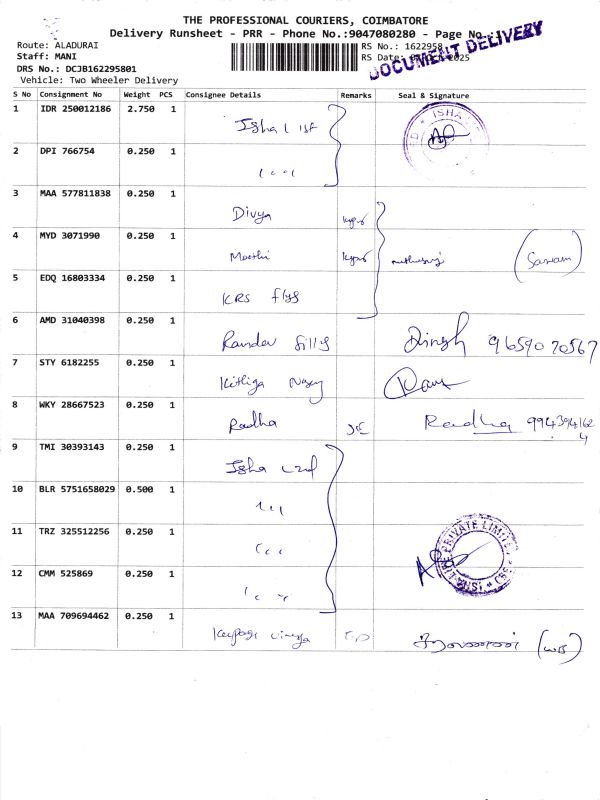 THE PROFESSIONAL COURIERS, COIMBATORE
Delivery Runsheet - PRR - Phone No.:9047080280 - Page No.
DOCUMENT DELIVERY
Route: ALADURAI
RS No.: 1622958
Staff: MANI
RS Date: 2025
DRS No.: DCJB162295801
Vehicle: Two Wheeler Delivery
S No Consignment No Weight PCS Consignee Details Remarks Seal & Signature
1 IDR 250012186 2.750 1 Isha ISHA
2 DPI 766754 0.250 1
3 MAA 577811838 0.250 1 Divya
4 MYD 3071990 0.250 1 (Sanam)
5 EDQ 16803334 0.250 1 KRS
6 AMD 31040398 0.250 1 Dinesh 9659070567
7 STY 6182255 0.250 1
8 WKY 28667523 0.250 1 Radha Radha
9 TMI 30393143 0.250 1 Isha
10 BLR 5751658029 0.500 1
11 TRZ 325512256 0.250 1 PRIVATE LIMITED
12 CMM 525869 0.250 1
13 MAA 709694462 0.250 1